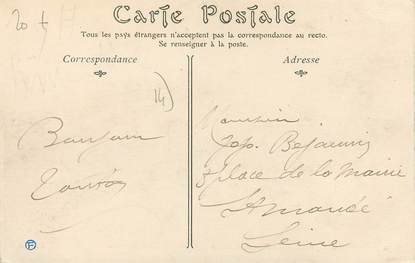 20 +
Carte Postale
Tous les pays étrangers n'acceptent pas la correspondance au recto.
Se renseigner à la poste.
Correspondance
Adresse
14)
Monsieur
Jos.
place de la Mairie
St Mandé
Seine